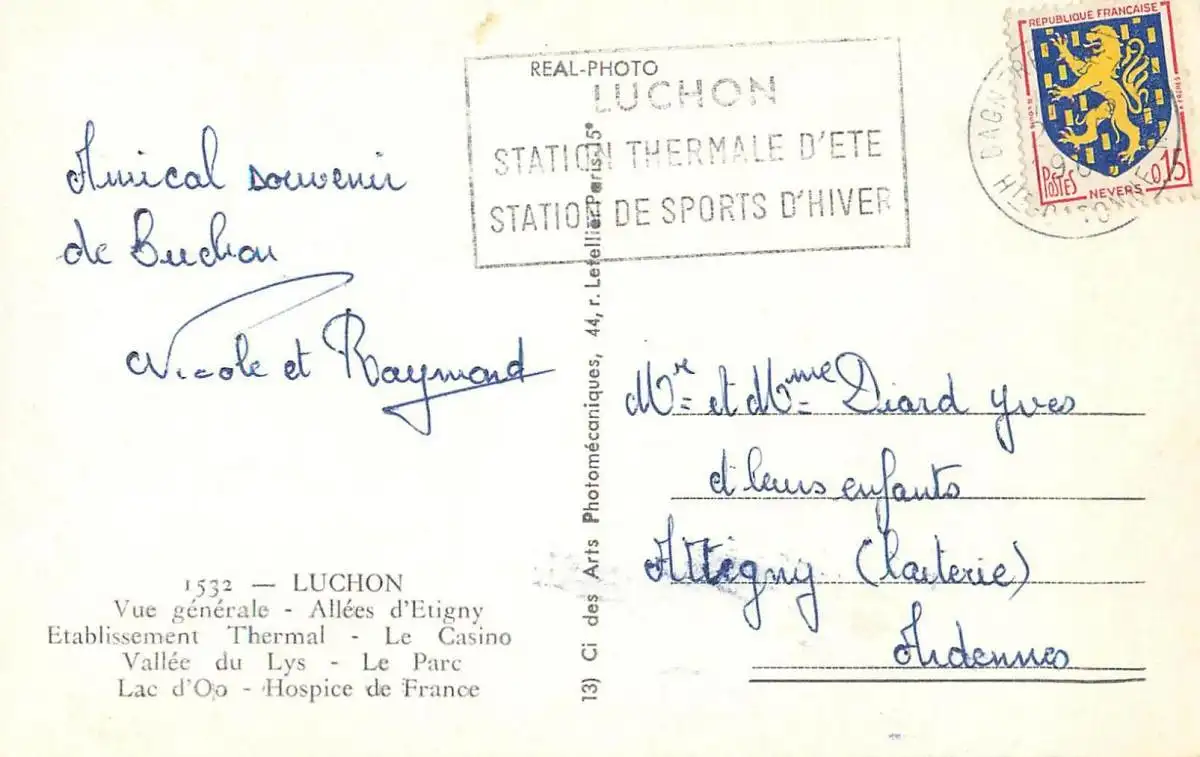 REAL-PHOTO
LUCHON
STATION THERMALE D'ETE
STATION DE SPORTS D'HIVER
REPUBLIQUE FRANÇAISE
POSTES
NEVERS
0,15
Amical souvenir
de Luchon
Nicole et Raymond
Mr et Mme Diard Yves
et leurs enfants
Attigny (Laiterie)
Ardennes
1532 — LUCHON
Vue générale - Allées d'Etigny
Etablissement Thermal - Le Casino
Vallée du Lys - Le Parc
Lac d'Oo - Hospice de France
13) Ci des Arts Photomécaniques, 44, r. Letellier Paris-15e